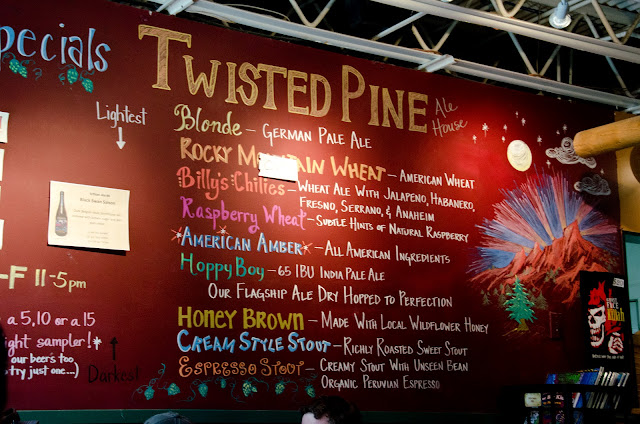 Specials
TWISTED PINE
Ale
House
Lightest
Blonde - GERMAN PALE ALE
ROCKY MOUNTAIN WHEAT - AMERICAN WHEAT
Billy's Chilies - WHEAT ALE WITH JALAPENO, HABANERO,
FRESNO, SERRANO, & ANAHEIM
Raspberry Wheat - SUBTLE HINTS OF NATURAL RASPBERRY
AMERICAN AMBER - ALL AMERICAN INGREDIENTS
Hoppy Boy - 65 IBU INDIA PALE ALE
OUR FLAGSHIP ALE DRY HOPPED TO PERFECTION
HONEY BROWN - MADE WITH LOCAL WILDFLOWER HONEY
CREAM STYLE STOUT - RICHLY ROASTED SWEET STOUT
ESPRESSO STOUT - CREAMY STOUT WITH UNSEEN BEAN
ORGANIC PERUVIAN ESPRESSO
-F 11-5pm
a 5, 10 or a 15
ight sampler!*
our beer's too
try just one...)
Darkest